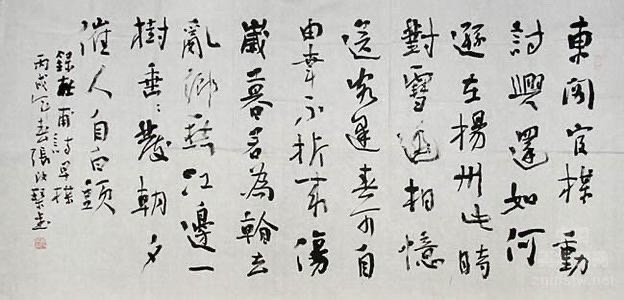 東閣官楳動
詩興還如何
遜在揚州此時
對雪遙相憶
送客逢春可自
由幸不折來傷
歲暮若為看去
亂鄉愁江邊一
樹垂〻發朝夕
催人自白頭
錄杜甫詩早楳
丙戌春張